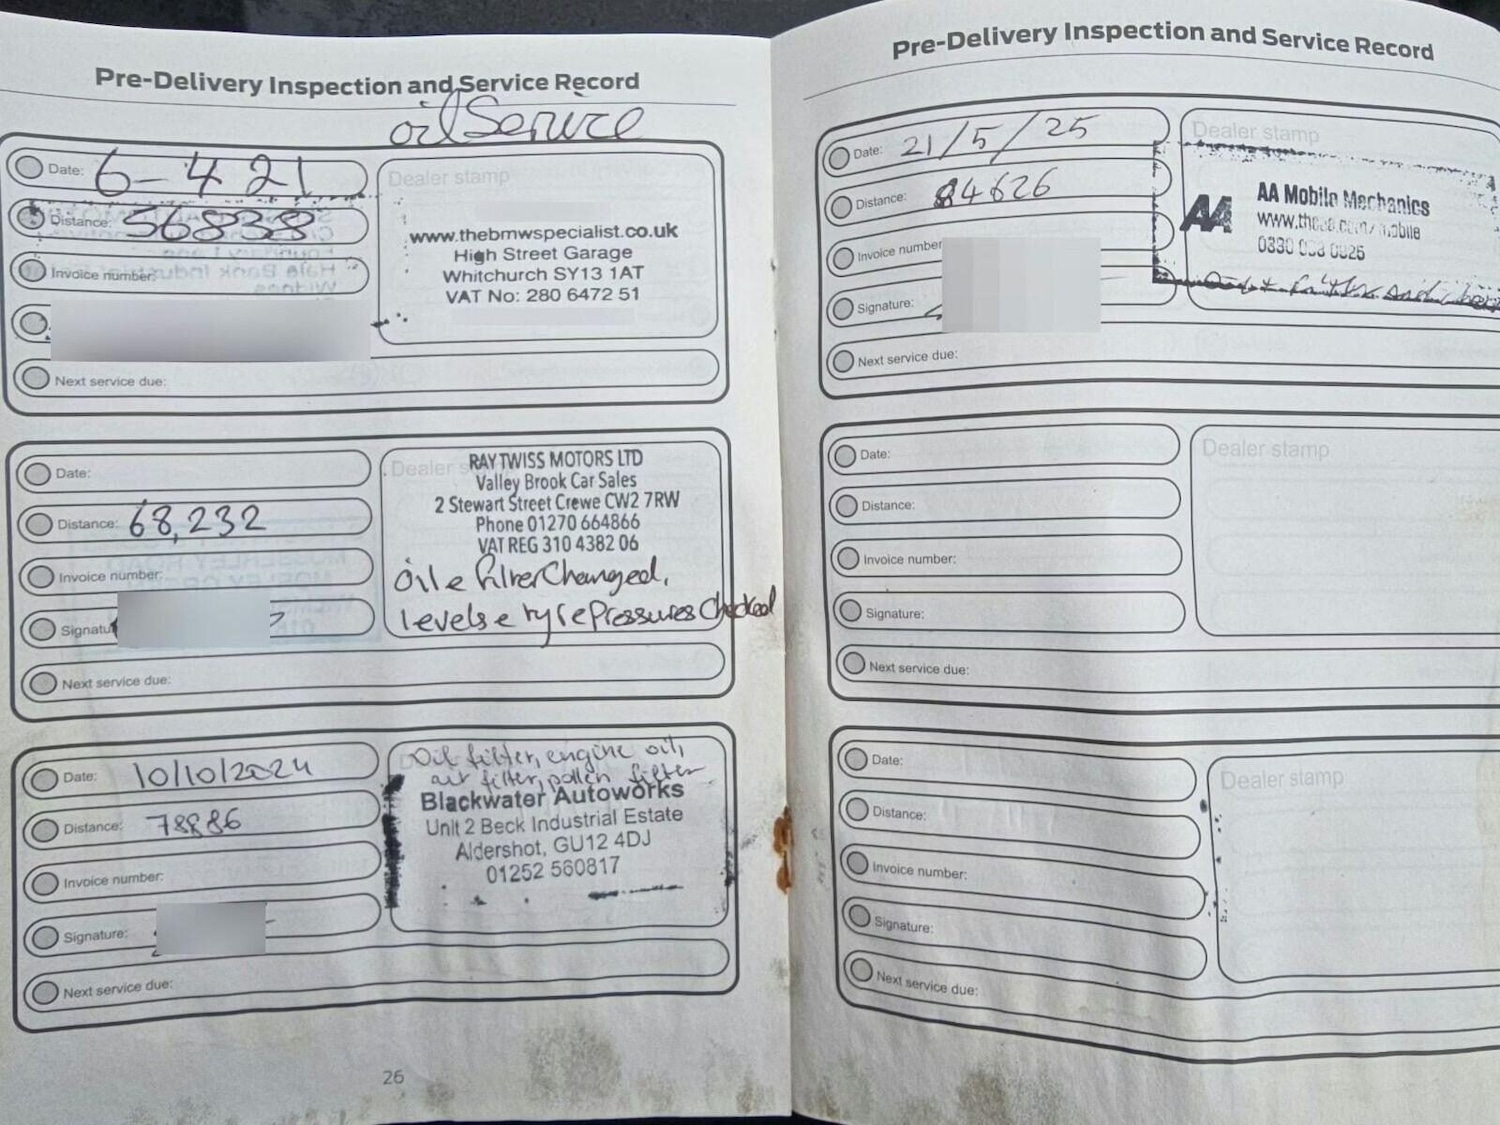 Pre-Delivery Inspection and Service Record
oil Service
Date: 6-4 21
Distance: 56838
Invoice number:
Next service due:
Dealer stamp
www.thebmwspecialist.co.uk
High Street Garage
Whitchurch SY13 1AT
VAT No: 280 6472 51
Date:
Distance: 68,232
Invoice number:
Signatu
Next service due:
Dealer s
RAY TWISS MOTORS LTD
Valley Brook Car Sales
2 Stewart Street Crewe CW2 7RW
Phone 01270 664866
VAT REG 310 4382 06
Oil e filter Changed,
levels e tyre Pressures Checked
Date: 10/10/2024
Distance: 78886
Invoice number:
Signature:
Next service due:
Oil filter, engine oil,
air filter, pollen filter
Blackwater Autoworks
Unit 2 Beck Industrial Estate
Aldershot, GU12 4DJ
01252 560817
26
Pre-Delivery Inspection and Service Record
Date: 21/5/25
Distance: 84626
Invoice number
Signature:
Next service due:
Dealer stamp
AA
AA Mobile Mechanics
www.theaa.com/mobile
0330
and
Date:
Distance:
Invoice number:
Signature:
Next service due:
Dealer stamp
Date:
Distance:
Invoice number:
Signature:
Next service due:
Dealer stamp